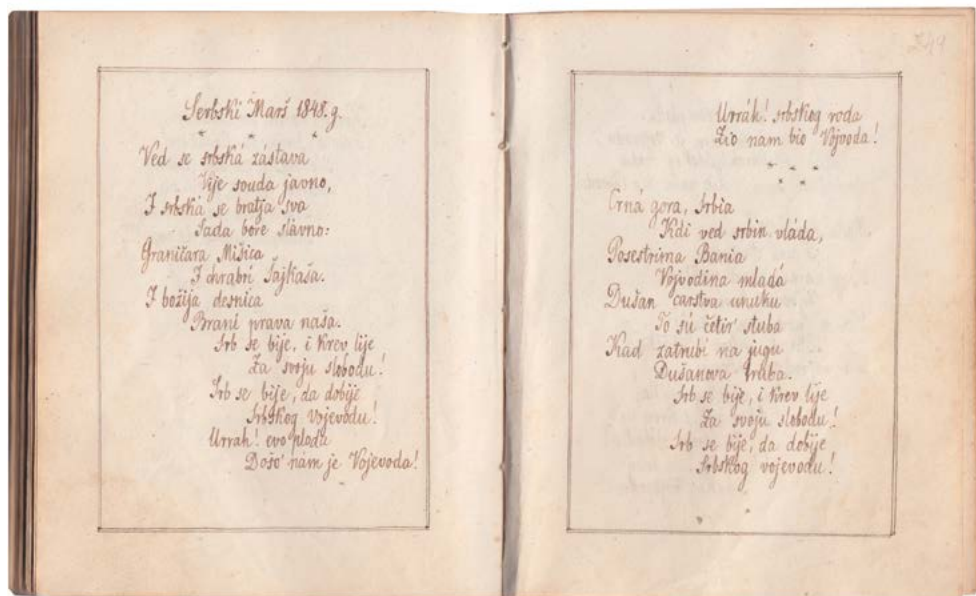 Serbski Marš 1848. g.
Ved se srbská zástava
Vije souda javno,
I srbská se bratja sva
Sada bore slávno:
Graničara Mišica
I chrabri Šajkaša.
I božija desnica
Brani prava naša.
Srb se bije, i krev lije
Za svoju slobodu!
Srb se bije, da dobije
Srbskog vojevodu!
Urrah! evo ploda
Došo' nam je Vojevoda!
244
Urrák! srbskog roda
Žio nam bio Vojvoda!
Crná gora, Srbia
Kdi ved srbin vláda,
Posestrima Bania
Vojvodina mladá
Dušan carstva unuku
To sú četir stuba
Kad zatrubí na jugu
Dušanova truba.
Srb se bije, i krev lije
Za svoju slobodu!
Srb se bije, da dobije
Srbskog vojevodu!